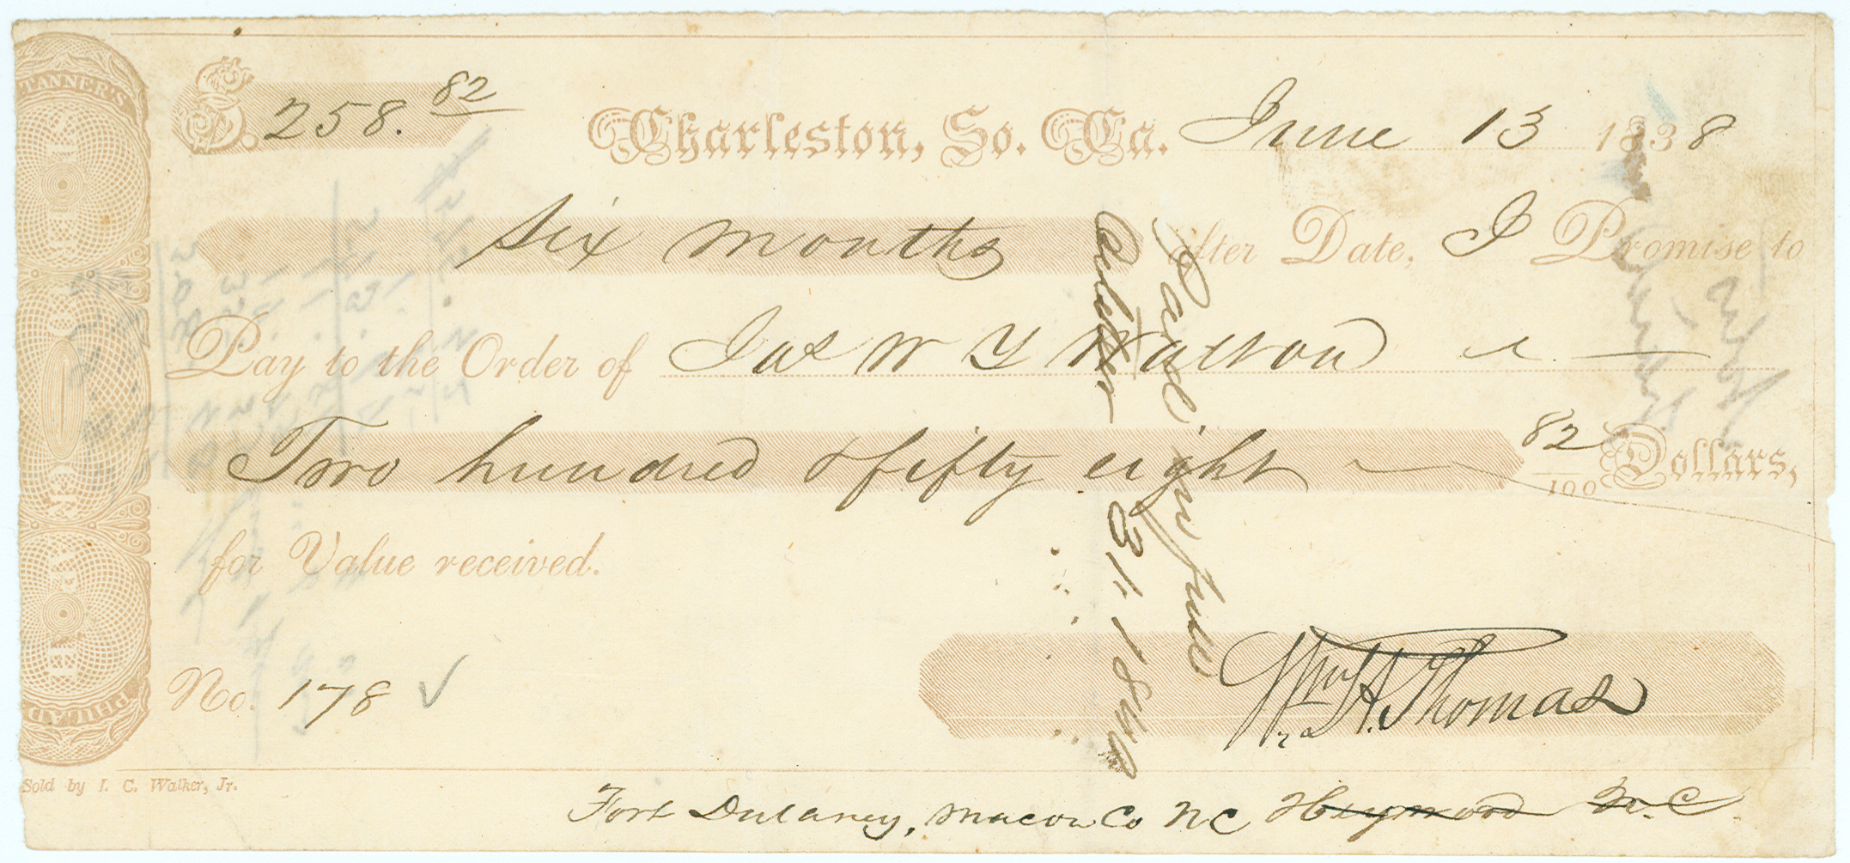 TANNER'S
PHILAD
$. 258. 82
Charleston, So. Ca. June 13 1838
Six months after Date, I Promise to
Pay to the Order of Jas W Y Walton
Two hundred & fifty eight 82/100 Dollars,
for Value received.
No. 178 ✓
Wm H. Thomas
Sold by I. C. Walker, Jr.
Fort Dulaney, Macon Co NC Haywood N. C.
Paid in full
31 1840